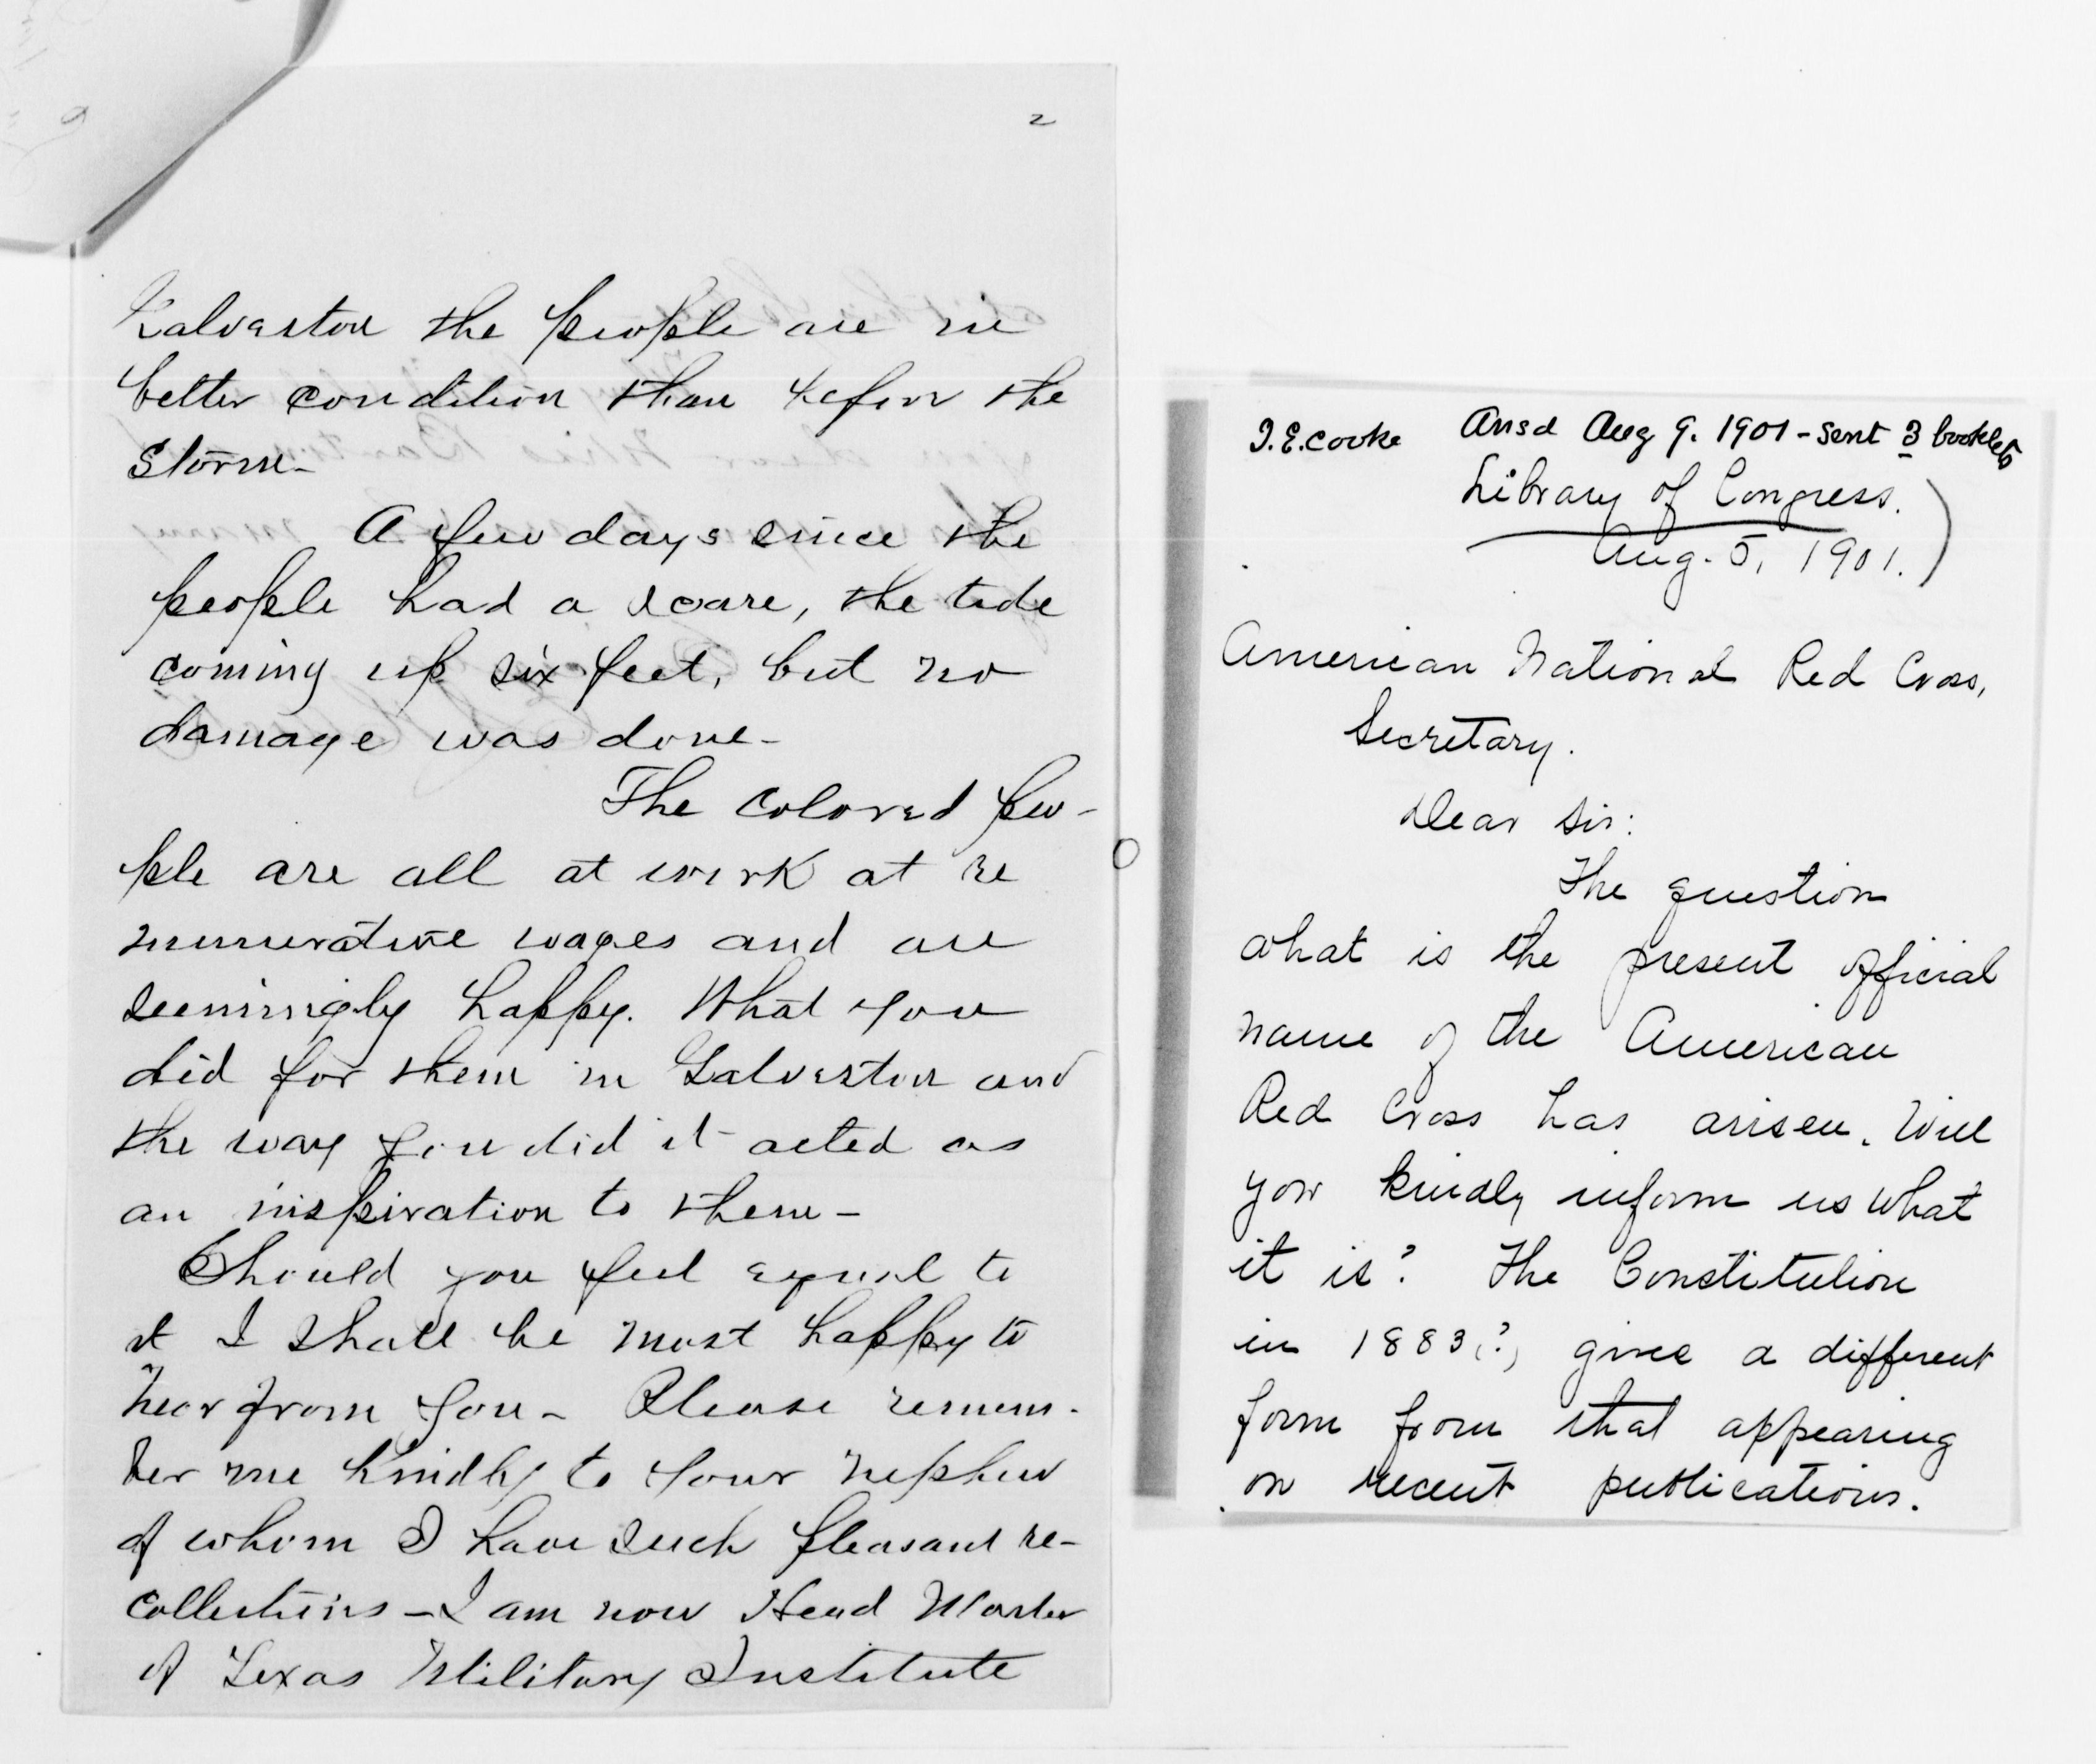 2
Galveston the people are in
better condition than before the
storm-
A few days since the
people had a scare, the tide
coming up six feet, but no
damage was done-
The colored peo-
ple are all at work at re
munerative wages and are
seemingly happy. What you
did for them in Galveston and
the way you did it acted as
an inspiration to them-
Should you feel equal to
it I shall be most happy to
hear from you- Please remem-
ber me kindly to your nephew
of whom I have such pleasant re-
collections - I am now Head Master
of Texas Military Institute
J.E.Cooke Ansd Aug 9. 1901 - sent 3 booklets
Library of Congress.
Aug. 5, 1901.
American National Red Cross,
Secretary.
Dear Sir:
The question
what is the present official
name of the American
Red Cross has arisen. Will
you kindly inform us what
it is? The Constitution
in 1883(?) gives a different
form from that appearing
on recent publications.